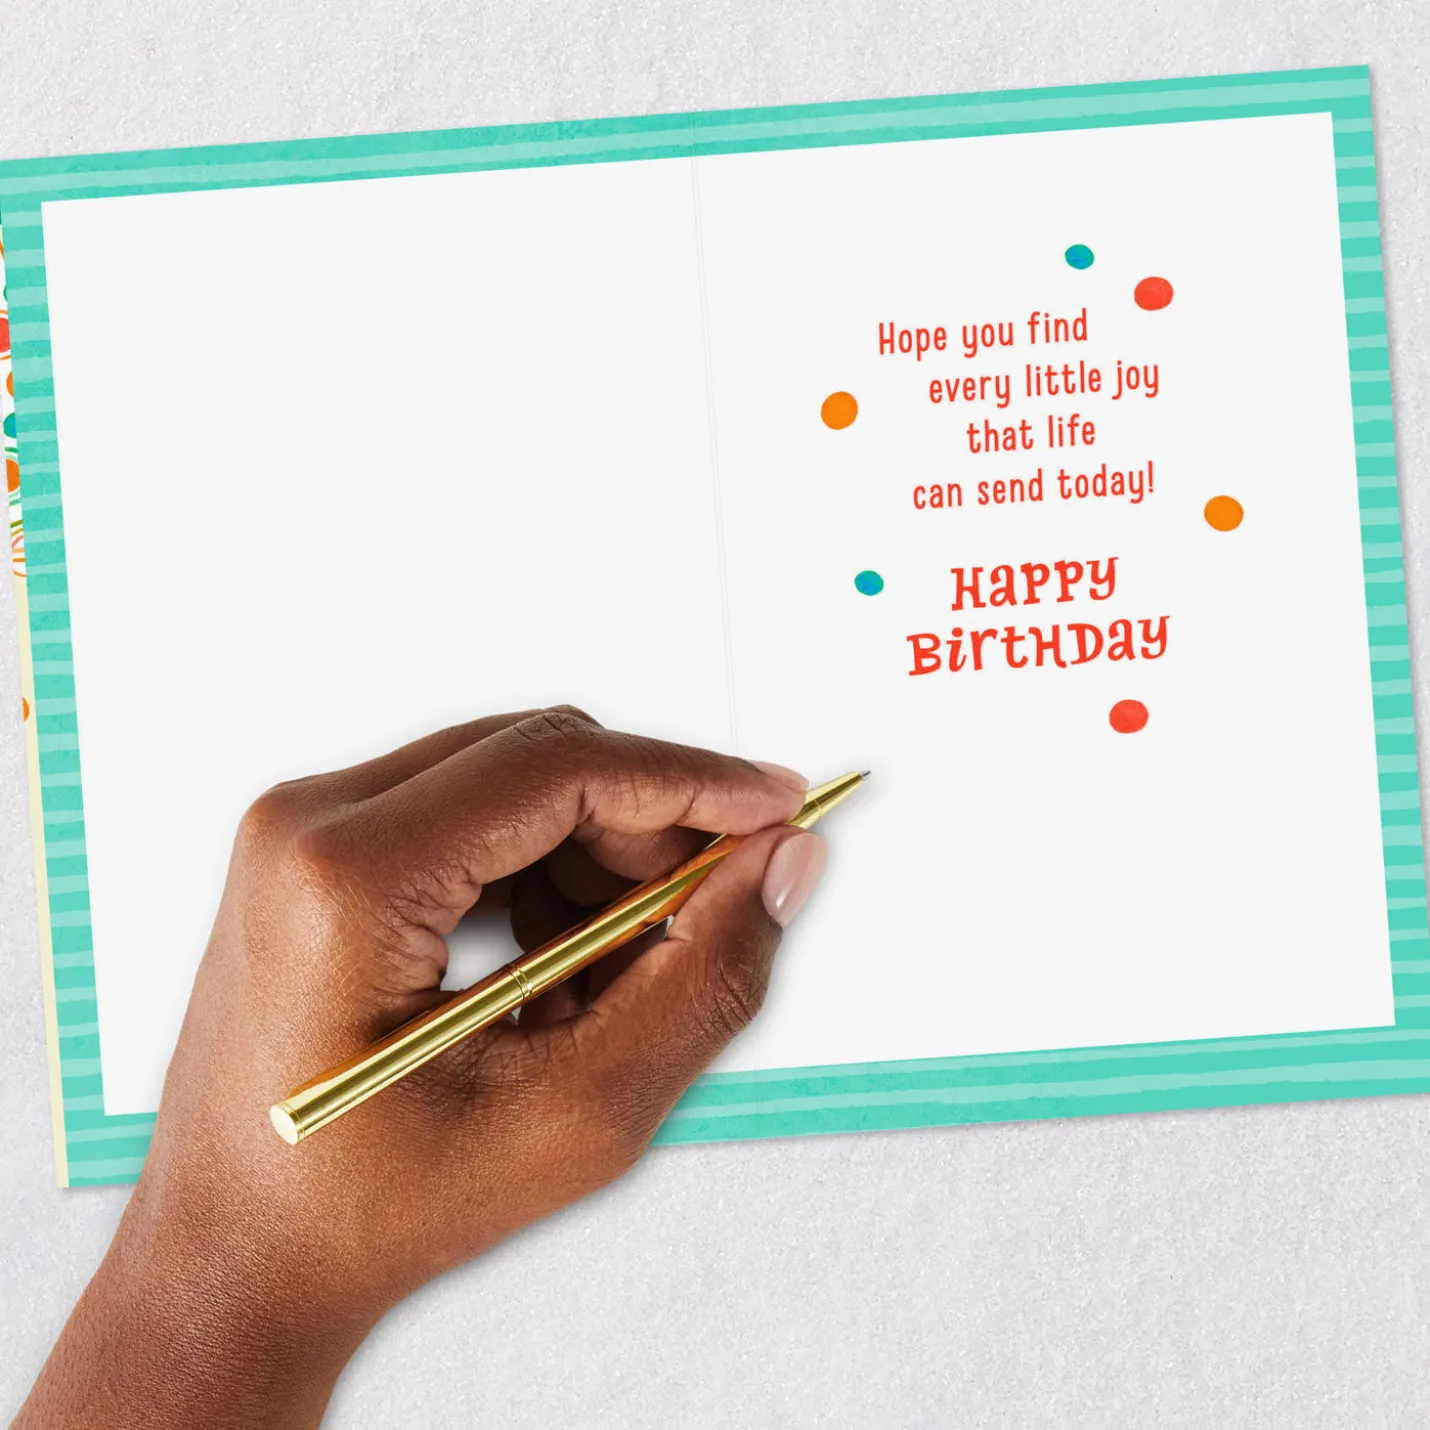 Hope you find
every little joy
that life
can send today!
Happy
Birthday